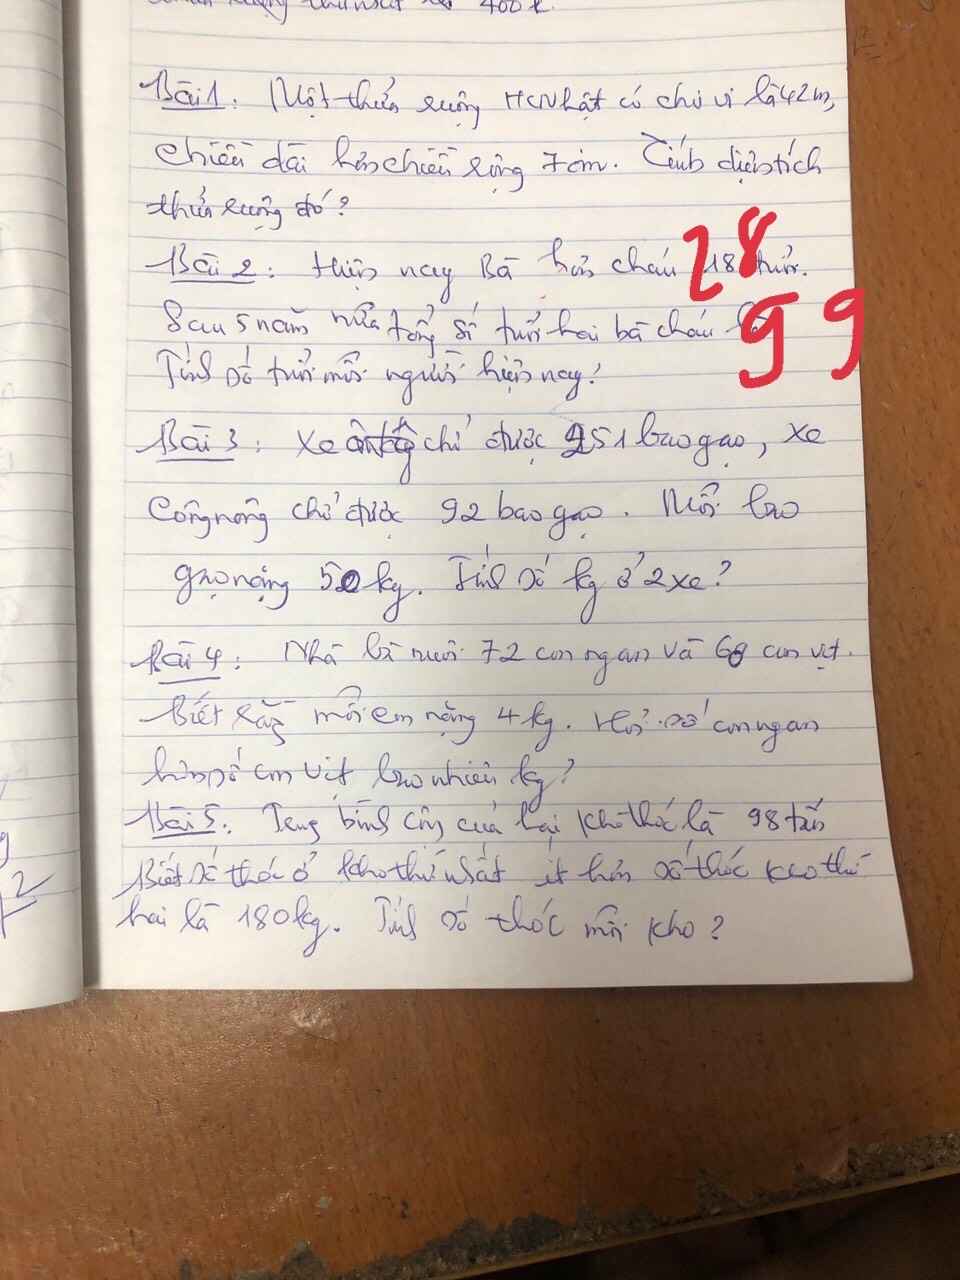 400k.
Bài 1: Một thửa ruộng HCNhật có chu vi là 42m,
chiều dài hơn chiều rộng 7cm. Tính diện tích
thửa ruộng đó?
Bài 2: Hiện nay Bà hơn cháu 28 tuổi.
Sau 5 năm nữa tổng số tuổi hai bà cháu là 99
Tính số tuổi mỗi người hiện nay?
Bài 3: Xe chở được 251 bao gạo, xe
Công nông chở được 92 bao gạo. Mỗi bao
gạo nặng 50kg. Tính số kg ở 2 xe?
Bài 4: Nhà bà nuôi 72 con ngan và 68 con vịt.
Biết rằng mỗi con nặng 4kg. Hỏi số con ngan
hơn số con vịt bao nhiêu kg?
Bài 5: Trung bình cộng của hai kho thóc là 98 tấn
Biết số thóc ở kho thứ nhất ít hơn số thóc kho thứ
hai là 180kg. Tính số thóc mỗi kho?